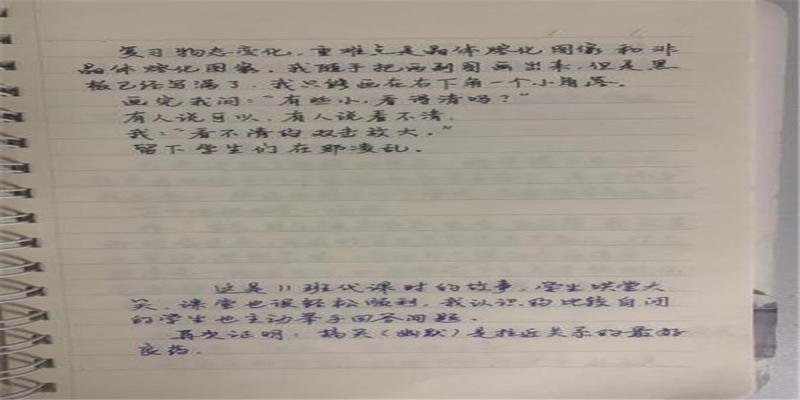 复习物态变化，重难点是晶体熔化图像和非
晶体熔化图像。我随手把两副图画出来，但是黑
板已经写满了，我只能画在右下角一个小角落。
画完我问：“有些小，看得清吗？”
有人说可以，有人说看不清。
我：“看不清的双击放大。”
留下学生们在那凌乱。
这是11班代课时的故事，学生哄堂大
笑，课堂也很轻松顺利，我认识的比较自闭
的学生也主动举手回答问题。
再次证明：搞笑（幽默）是拉近关系的最好
良药。